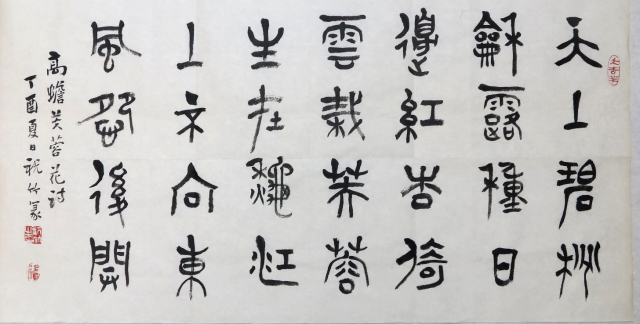 天上碧桃
龢露種日
邊紅杏倚
雲栽芙蓉
生在龝江
上不向東
風怨後開
高蟾芙蓉花詩
丁酉夏日祝竹篆